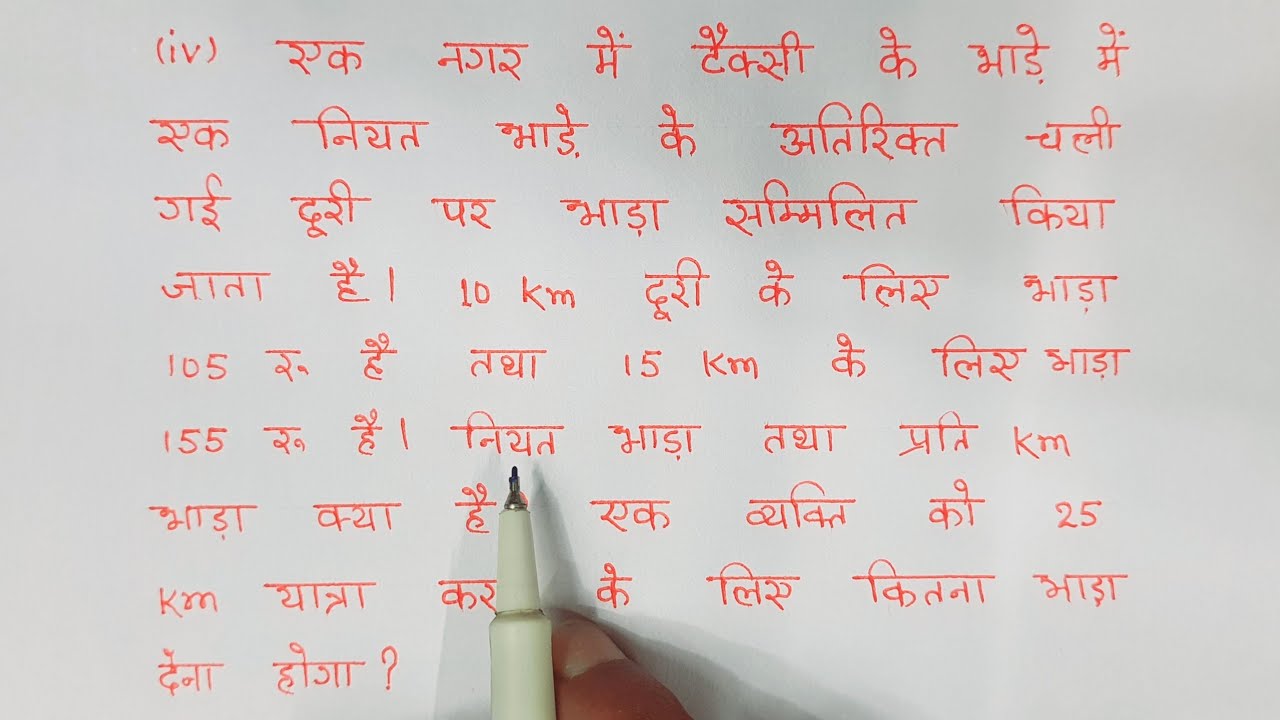 (iv) एक नगर में टैक्सी के भाड़े में
एक नियत भाड़े के अतिरिक्त चली
गई दूरी पर भाड़ा सम्मिलित किया
जाता है। 10 Km दूरी के लिए भाड़ा
105 रू है तथा 15 Km के लिए भाड़ा
155 रू है। नियत भाड़ा तथा प्रति Km
भाड़ा क्या है एक व्यक्ति को 25
Km यात्रा के लिए कितना भाड़ा
देना होगा?